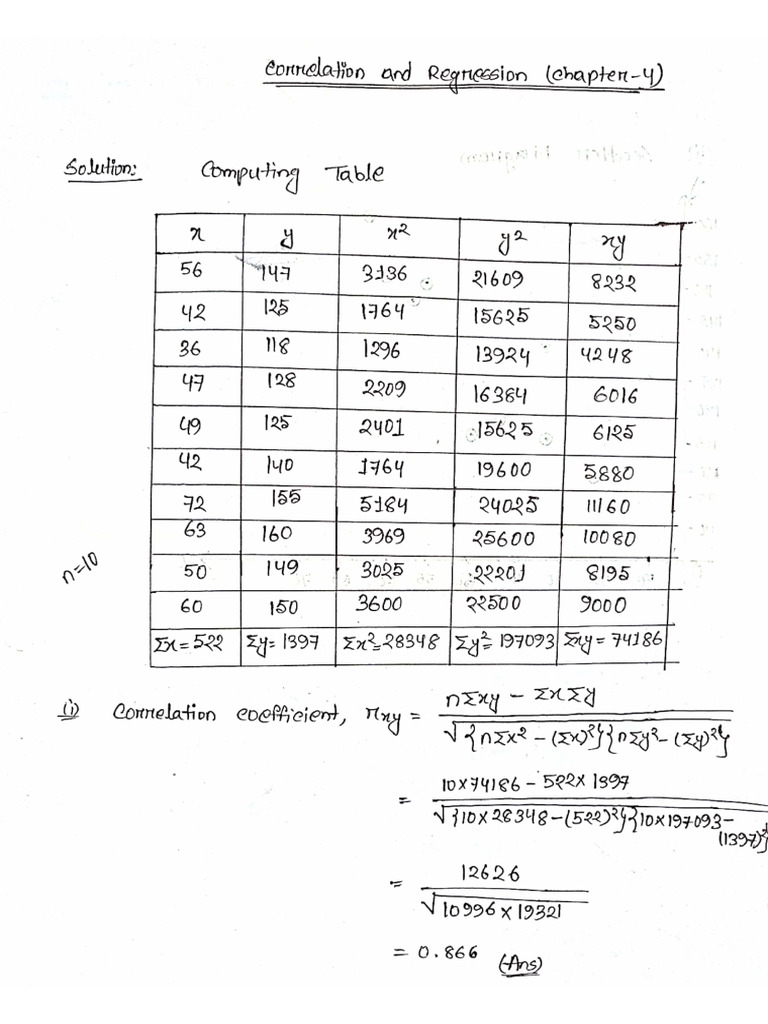 Correlation and Regression (chapter-4)
Solution: Computing Table
x y x² y² xy
56 147 3136 21609 8232
42 125 1764 15625 5250
36 118 1296 13924 4248
47 128 2209 16384 6016
49 125 2401 15625 6125
42 140 1764 19600 5880
72 155 5184 24025 11160
63 160 3969 25600 10080
n=10
50 149 3025 22201 8195
60 150 3600 22500 9000
Σx=522 Σy=1397 Σx²=28348 Σy²=197093 Σxy=74186
(i) Correlation coefficient, rxy = nΣxy - ΣxΣy / √{nΣx² - (Σx)²}{nΣy² - (Σy)²}
= 10×74186 - 522×1397 / √{10×28348-(522)²}{10×197093-(1397)²}
= 12626 / √10996×19321
= 0.866 (Ans)